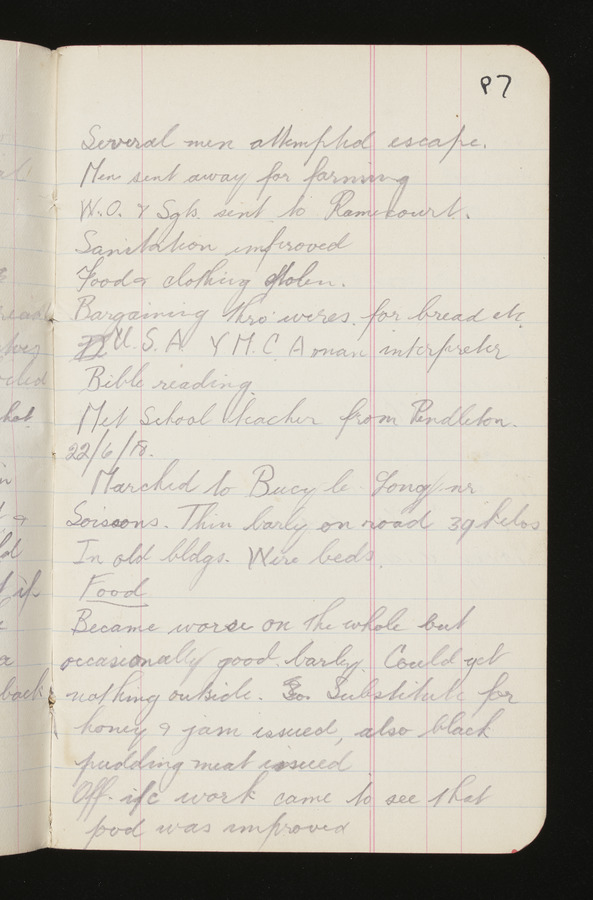 87
Several men attempted escape.
Men sent away for farming
W.O. & Sgts sent to Ramecourt.
Sanitation improved
Food & clothing stolen.
Bargaining thro' wires. for bread etc
U.S.A Y M.C.A man interpreter
Bible reading.
Met School teacher from Pendleton.
22/6/18.
Marched to Bucy le Long nr
Soissons. Thin barley on road 39 kilos
In old bldgs. Wire beds.
Food
Became worse on the whole but
occasionally good barley. Could get
nothing outside. Substitute for
honey & jam issued, also black
pudding meat issued
Off. i/c work came to see that
food was improved